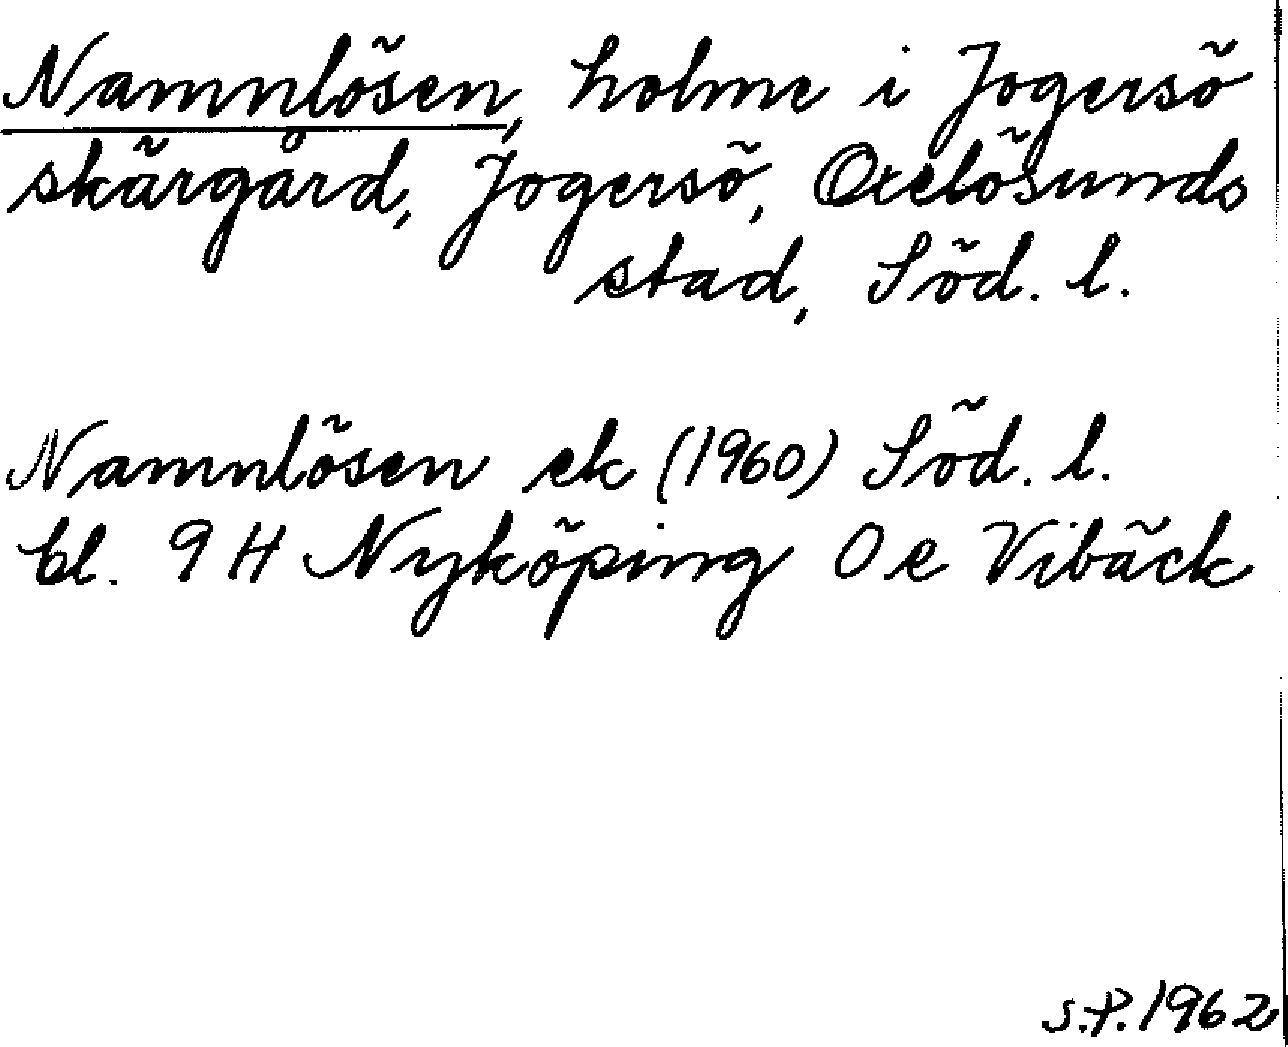 Namnlösen, holme i Jogersö
skärgård, Jogersö, Oxelösunds
stad, Söd. l.
Namnlösen ek (1960) Söd. l.
bl. 9 H Nyköping 0 e Vibäck
S.P. 1962